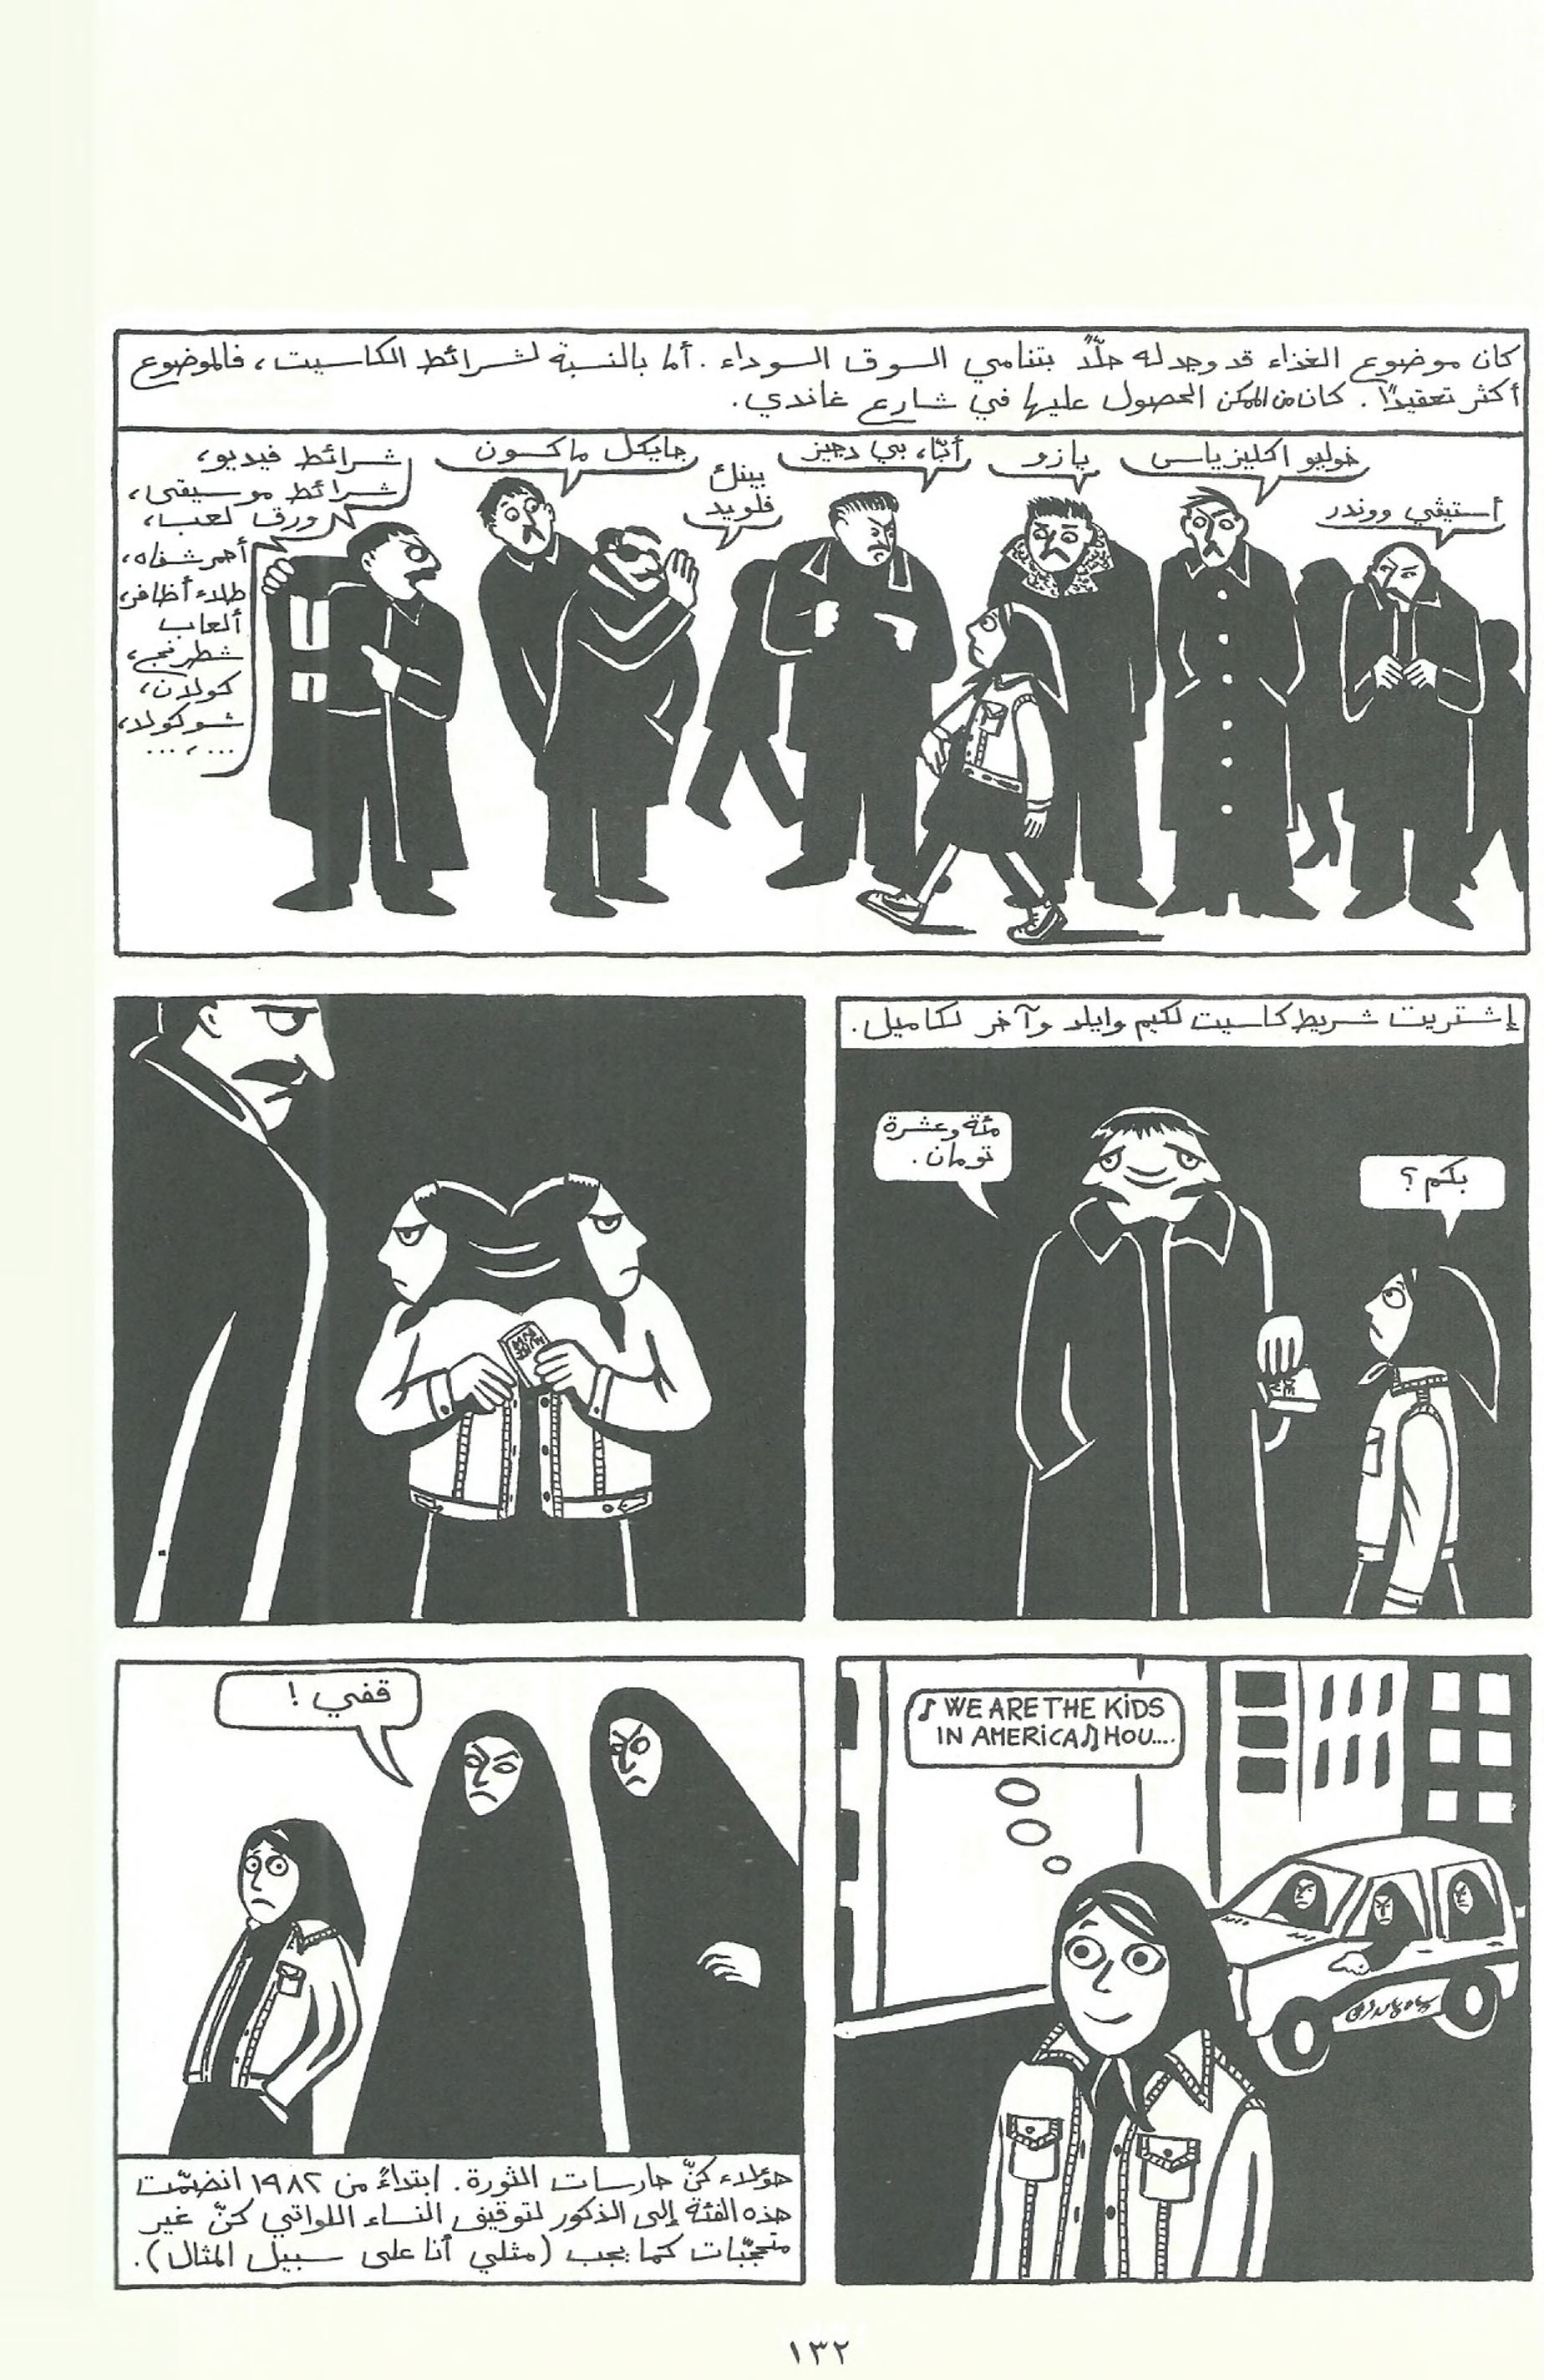 كان موضوع الغذاء قد وجد له حلّاً بتنامي السوق السوداء. أما بالنسبة لشرائط الكاسيت، فالموضوع
أكثر تعقيدًا. كان من الممكن الحصول عليها في شارع غاندي.
أستيڤي ووندر
خوليو اكليزياس
يازو
أبّا، بي دجيز
بينك
فلويد
جايكل ماكسون
شرائط فيديو،
شرائط موسيقى،
ورق لعب،
أحمر شفاه،
طلاء أظافر،
ألعاب
شطرنج،
كولان،
شوكولا،
...،...
إشتريت شريط كاسيت لكيم وايلد وآخر لكاميل.
بكم؟
مئة وعشرة
تومان.
♪ WE ARE THE KiDS
IN AMERiCA ♫ HOU....
قفي!
هؤلاء كنّ حارسات الثورة. ابتداءً من ١٩٨٢ انضمّت
هذه الفئة إلى الذكور لتوقيف النساء اللواتي كنّ غير
متحجّبات كما يجب (مثلي أنا على سبيل المثال).
١٣٢